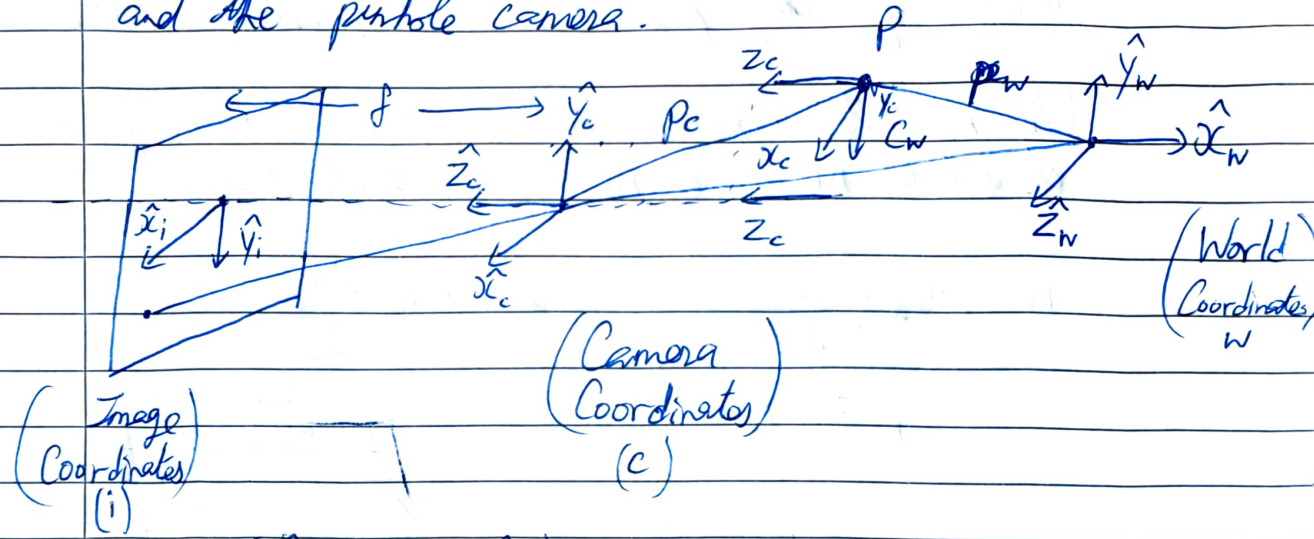 and the pinhole camera.
P
Zc
pw
ŷw
f
ŷc
Pc
yc
Cw
xc
x̂w
ẑc
x̂i
ŷi
Zc
ẑw
x̂c
(World
Coordinates,
w
(Camera
Coordinates)
(c)
(Image
Coordinates)
(i)